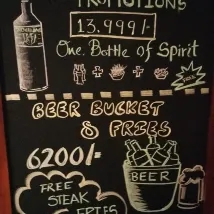 PROMOTIONS
13.999/-
One Bottle of Spirit
+ +
FREE
BEER BUCKET
& FRIES
6200/-
BEER
FREE
STEAK
FRIES